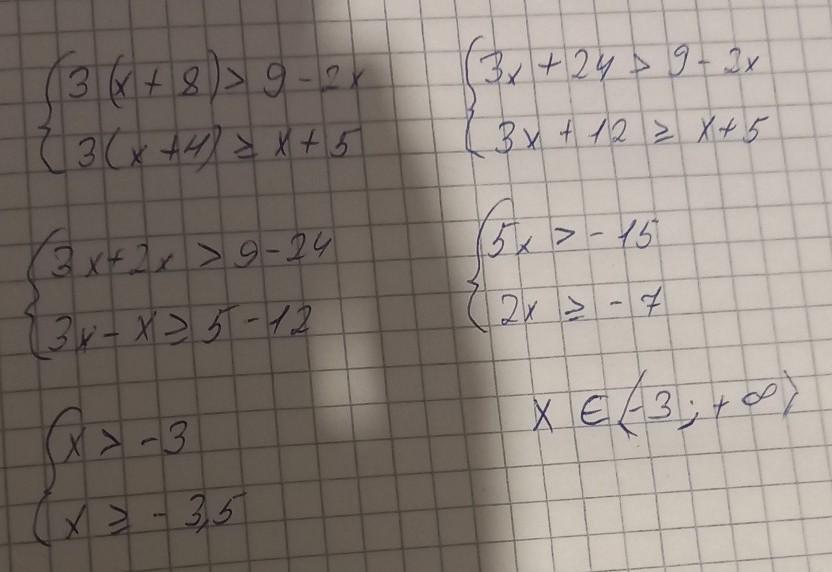 3(x + 8) > 9 - 2x
3(x + 4) ≥ x + 5
3x + 24 > 9 - 2x
3x + 12 ≥ x + 5
3x + 2x > 9 - 24
3x - x ≥ 5 - 12
5x > - 15
2x ≥ - 7
x > - 3
x ≥ - 3,5
x ∈ (-3 ; + ∞)